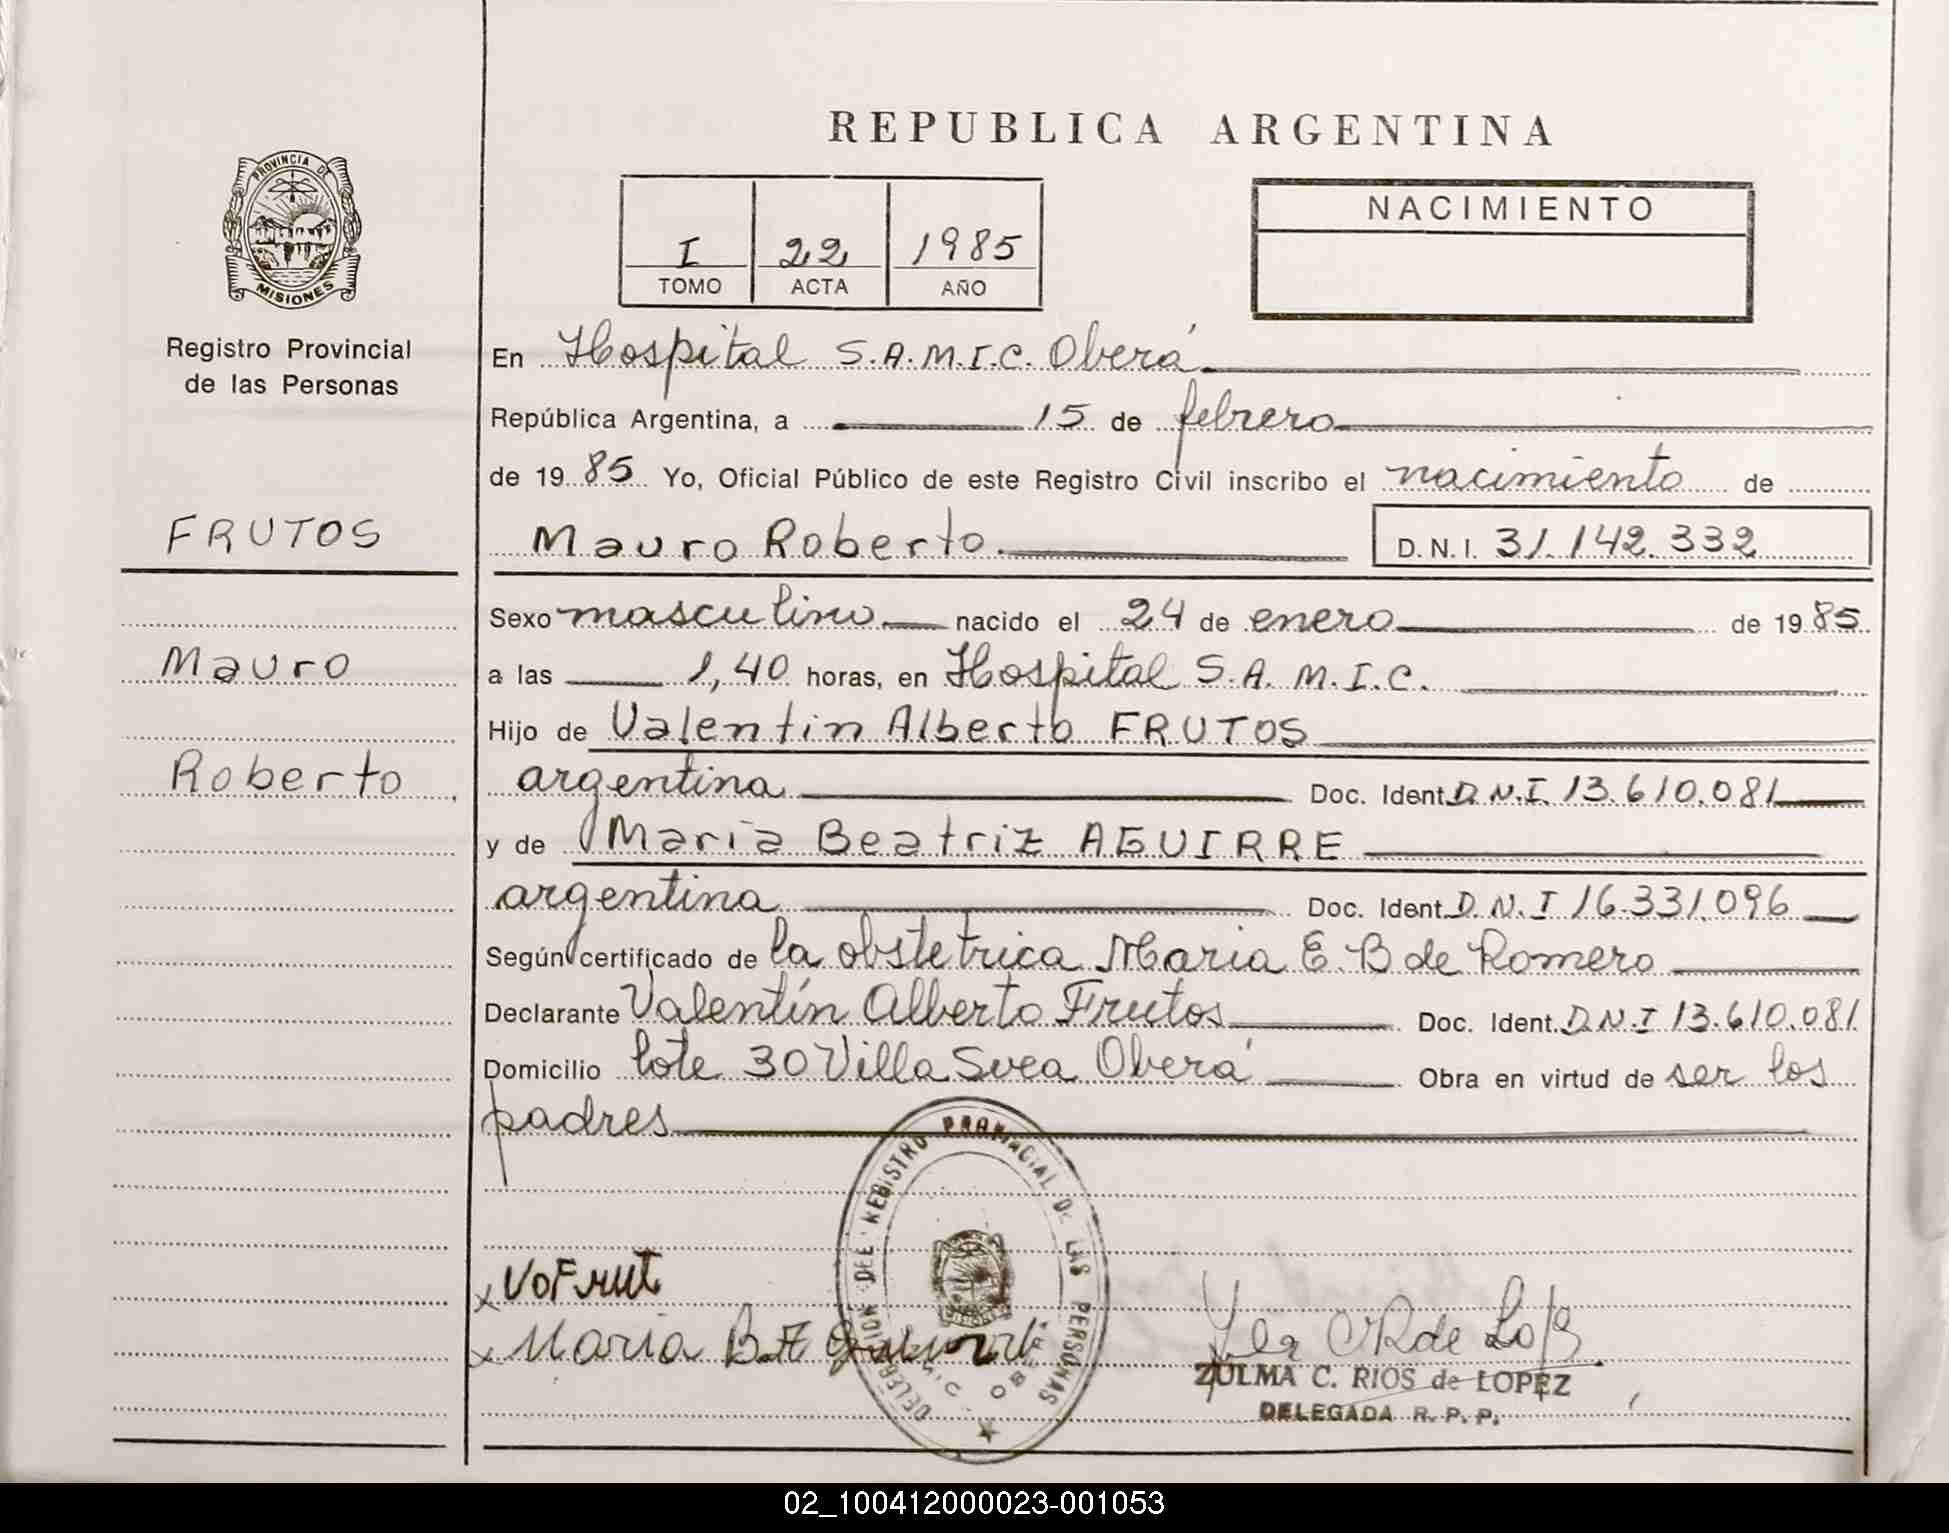 REPUBLICA ARGENTINA
PROVINCIA DE
MISIONES
Registro Provincial
de las Personas
FRUTOS
Mauro
Roberto
I 22 1985
TOMO ACTA AÑO
NACIMIENTO
En Hospital S.A.M.I.C. Oberá
República Argentina, a 15 de febrero
de 1985 Yo, Oficial Público de este Registro Civil inscribo el nacimiento de
Mauro Roberto D.N.I. 31.142.332
Sexo masculino nacido el 24 de enero de 1985
a las 1,40 horas, en Hospital S.A.M.I.C.
Hijo de Valentin Alberto FRUTOS
argentina Doc. Ident. D.N.I. 13.610.081
y de Maria Beatriz AGUIRRE
argentina Doc. Ident. D.N.I 16.331.096
Según certificado de la obstetrica Maria E. B de Romero
Declarante Valentín Alberto Frutos Doc. Ident. D.N.I 13.610.081
Domicilio lote 30 Villa Svea Oberá Obra en virtud de ser los
padres
DELEGACION DEL REGISTRO PROVINCIAL DE LAS PERSONAS
OBERA
x VoFrut
x Maria B.
ZULMA C. RIOS de LOPEZ
DELEGADA R. P. P.
02_100412000023-001053